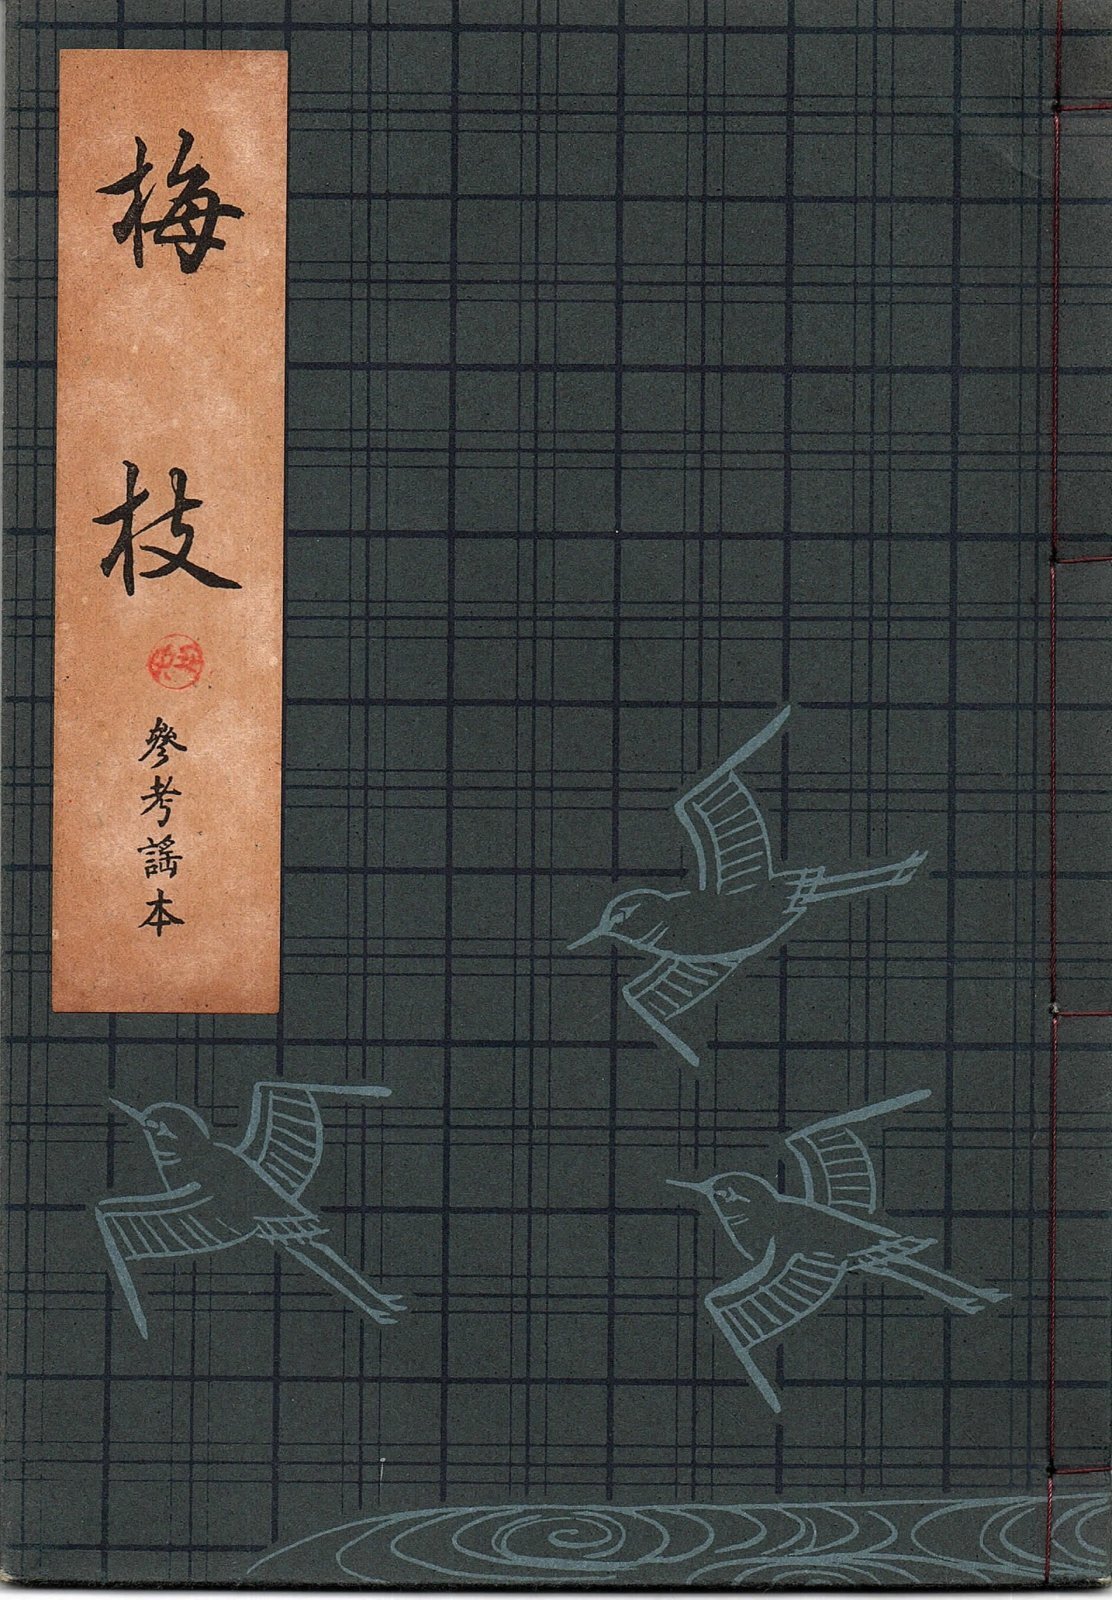 梅枝
參考謠本